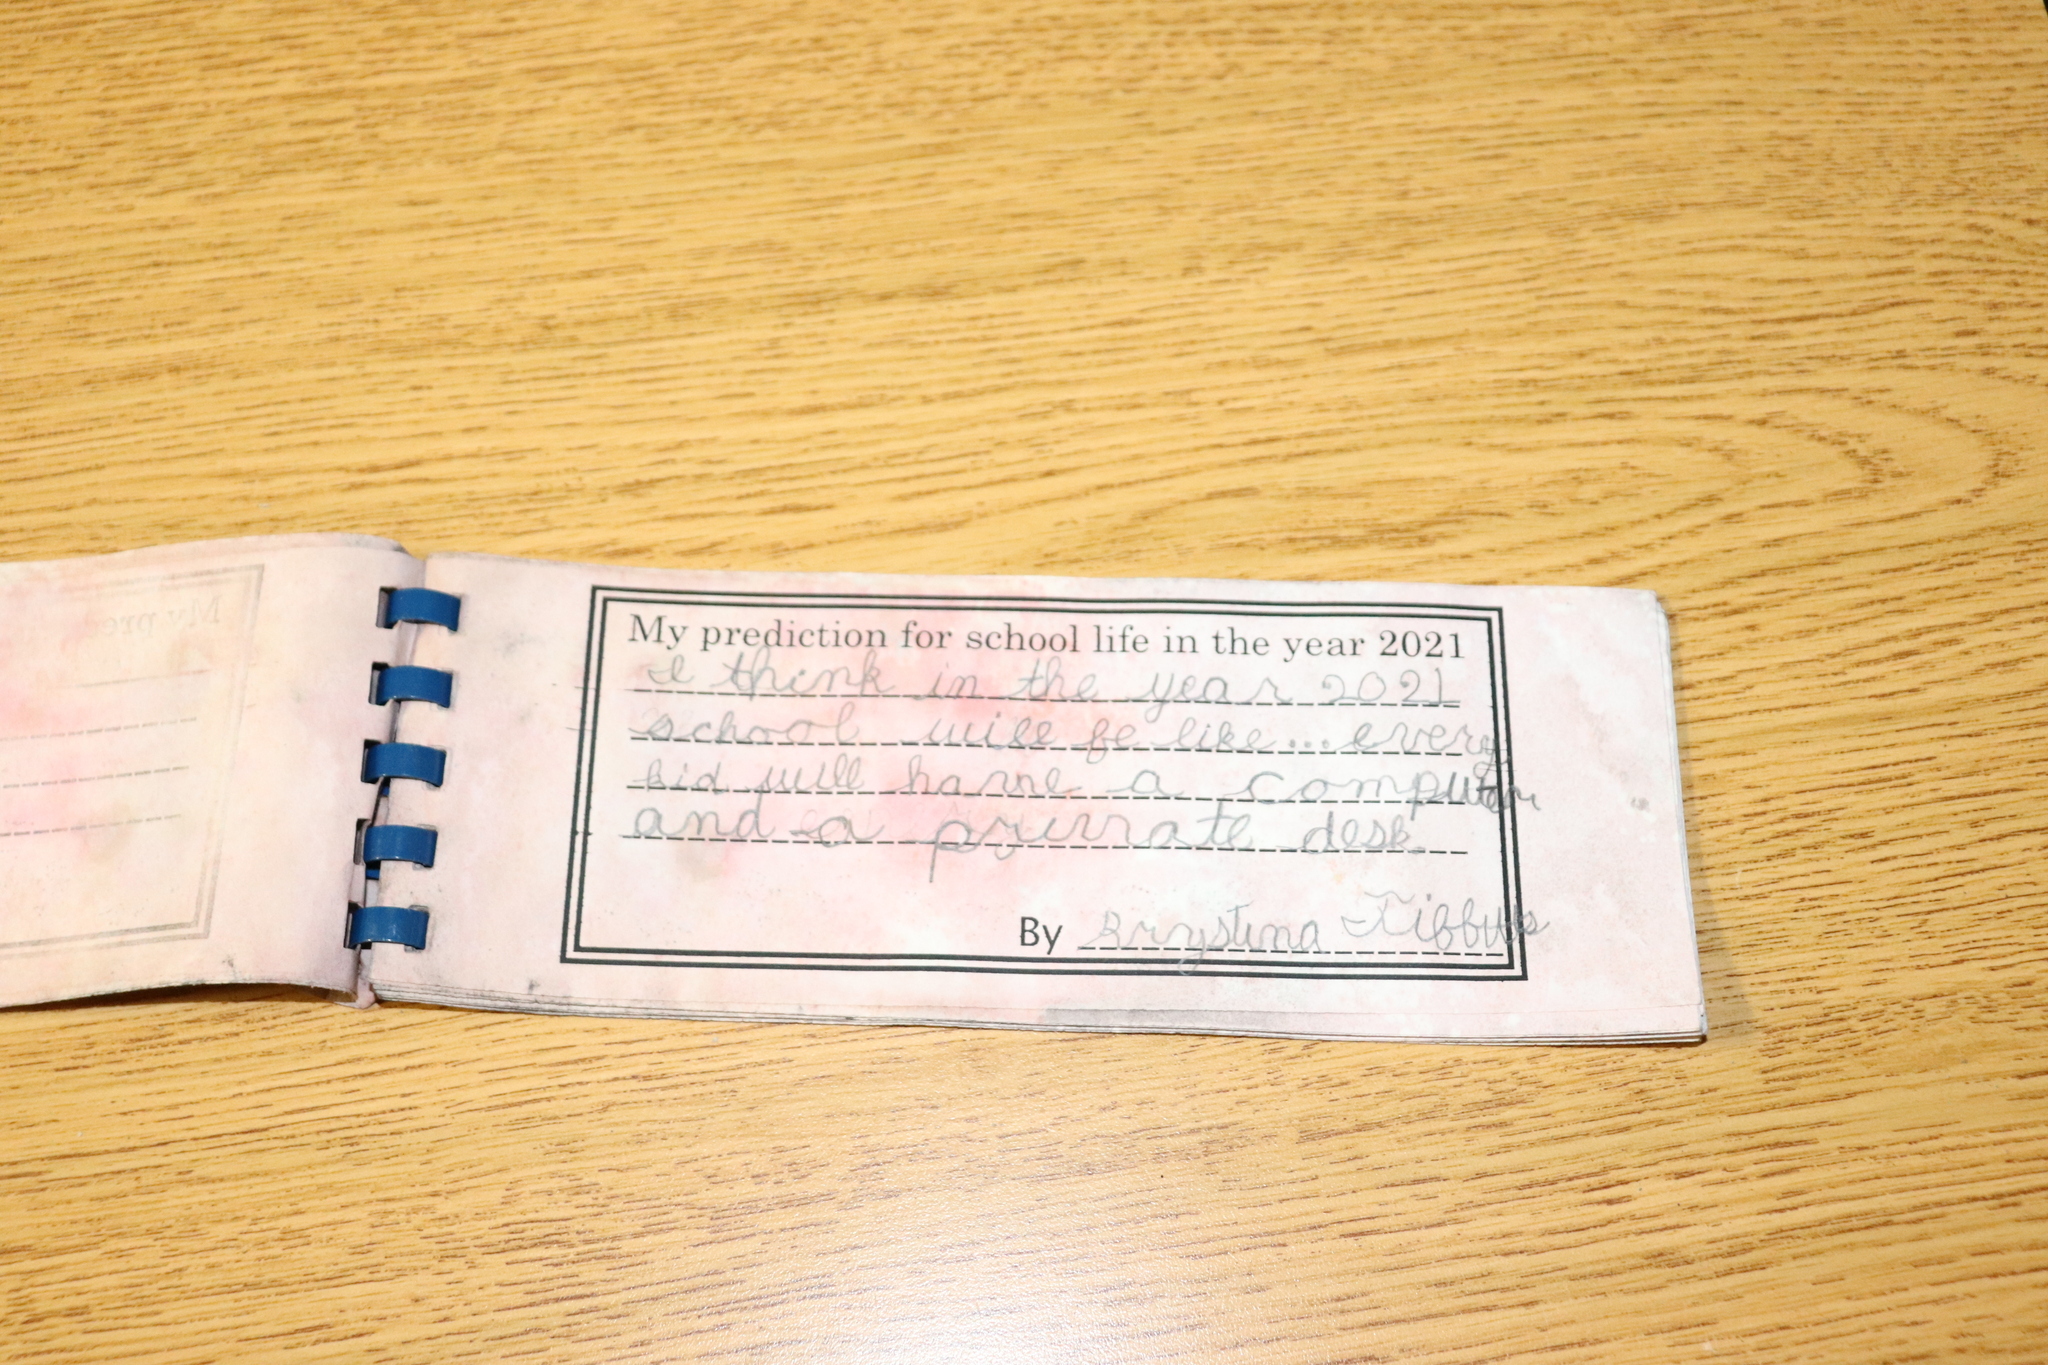 My prediction for school life in the year 2021
I think in the year 2021
school will be like... every
kid will have a computer
and a private desk
By Krystina Tibbets
My pre